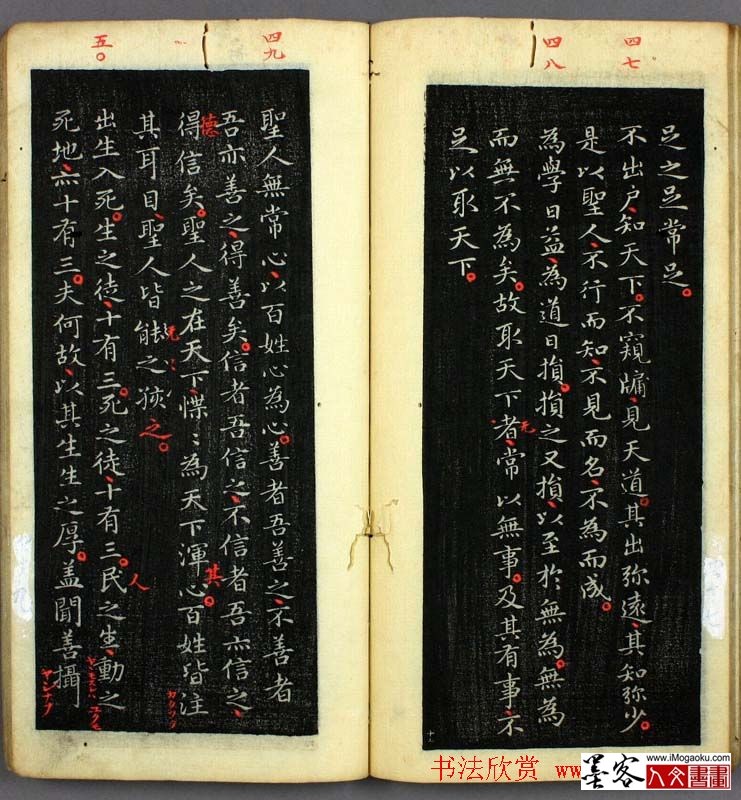 四七
四八
足之足常足。
不出户、知天下。不窺牖、見天道。其出弥遠、其知弥少。
是以聖人、不行而知、不見而名、不為而成。
為學日益、為道日損。損之又損、以至於無為。無為
而無不為矣。故取天下者、常以無事。及其有事、不
无
足以取天下。
十一
四九
五〇
聖人無常心、以百姓心為心。善者吾善之、不善者
吾亦善之、得善矣。信者吾信之、不信者吾亦信之、
德
得信矣。聖人之在天下、惵〻為天下渾心。百姓皆注
其
カタツラ
其耳目、聖人皆㲦之
之。
出生入死。生之徒、十有三。死之徒、十有三。民之生、動之
人
死地、亦十有三。夫何故、以其生生之厚。盖聞善攝
ヤシナフ
书法欣赏 www.iMogaoku.com
墨客
人文書畫